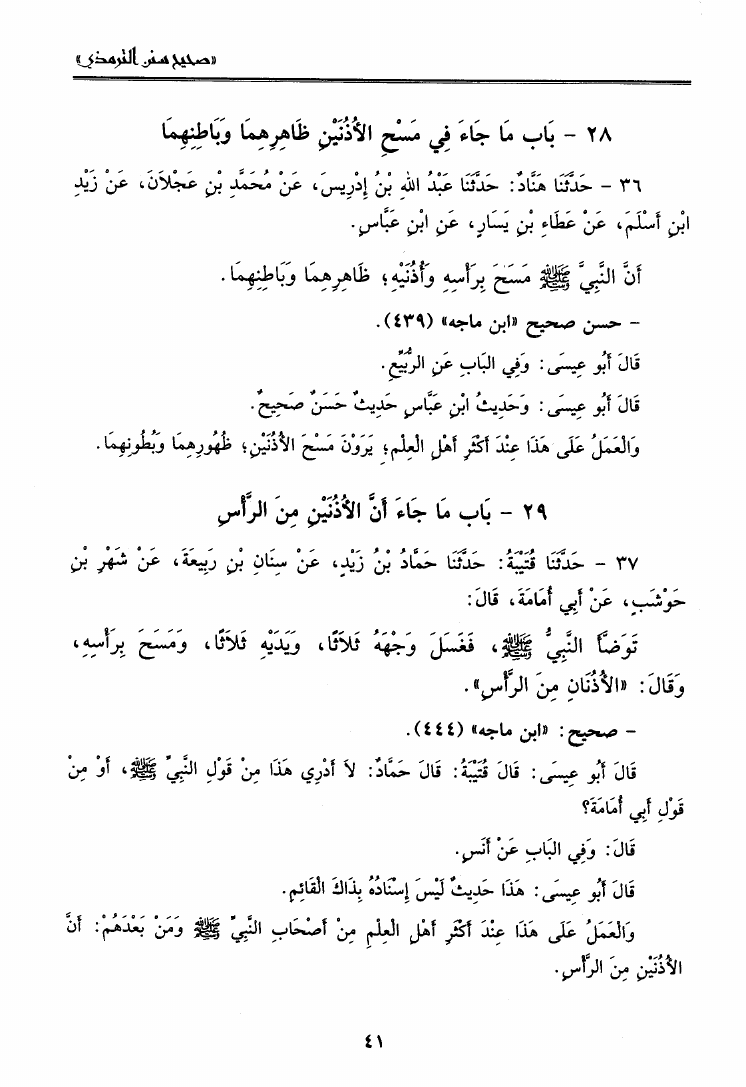 «صحيح سنن الترمذي»
٢٨ - بَاب مَا جَاءَ فِي مَسْحِ الأُذُنَيْنِ ظَاهِرِهِمَا وَبَاطِنِهِمَا
٣٦ - حَدَّثَنَا هَنَّادٌ: حَدَّثَنَا عَبْدُ اللهِ بْنُ إِدْرِيسَ، عَنْ مُحَمَّدِ بْنِ عَجْلاَنَ، عَنْ زَيْدِ
ابْنِ أَسْلَمَ، عَنْ عَطَاءِ بْنِ يَسَارٍ، عَنِ ابْنِ عَبَّاسٍ.
أَنَّ النَّبِيَّ ﷺ مَسَحَ بِرَأْسِهِ وَأُذُنَيْهِ؛ ظَاهِرِهِمَا وَبَاطِنِهِمَا.
- حسن صحيح «ابن ماجه» (٤٣٩).
قَالَ أَبُو عِيسَى: وَفِي البَابِ عَنِ الرُّبَيِّعِ.
قَالَ أَبُو عِيسَى: وَحَدِيثُ ابْنِ عَبَّاسٍ حَدِيثٌ حَسَنٌ صَحِيحٌ.
وَالْعَمَلُ عَلَى هَذَا عِنْدَ أَكْثَرِ أَهْلِ الْعِلْمِ؛ يَرَوْنَ مَسْحَ الأُذُنَيْنِ؛ ظُهُورِهِمَا وَبُطُونِهِمَا.
٢٩ - بَاب مَا جَاءَ أَنَّ الأُذُنَيْنِ مِنَ الرَّأْسِ
٣٧ - حَدَّثَنَا قُتَيْبَةُ: حَدَّثَنَا حَمَّادُ بْنُ زَيْدٍ، عَنْ سِنَانِ بْنِ رَبِيعَةَ، عَنْ شَهْرِ بْنِ
حَوْشَبٍ، عَنْ أَبِي أُمَامَةَ، قَالَ:
تَوَضَّأَ النَّبِيُّ ﷺ، فَغَسَلَ وَجْهَهُ ثَلاَثًا، وَيَدَيْهِ ثَلاَثًا، وَمَسَحَ بِرَأْسِهِ،
وَقَالَ: «الأُذُنَانِ مِنَ الرَّأْسِ».
- صحيح: «ابن ماجه» (٤٤٤).
قَالَ أَبُو عِيسَى: قَالَ قُتَيْبَةُ: قَالَ حَمَّادٌ: لاَ أَدْرِي هَذَا مِنْ قَوْلِ النَّبِيِّ ﷺ، أَوْ مِنْ
قَوْلِ أَبِي أُمَامَةَ؟
قَالَ: وَفِي البَابِ عَنْ أَنَسٍ.
قَالَ أَبُو عِيسَى: هَذَا حَدِيثٌ لَيْسَ إِسْنَادُهُ بِذَاكَ الْقَائِمِ.
وَالْعَمَلُ عَلَى هَذَا عِنْدَ أَكْثَرِ أَهْلِ الْعِلْمِ مِنْ أَصْحَابِ النَّبِيِّ ﷺ وَمَنْ بَعْدَهُمْ: أَنَّ
الأُذُنَيْنِ مِنَ الرَّأْسِ.
٤١